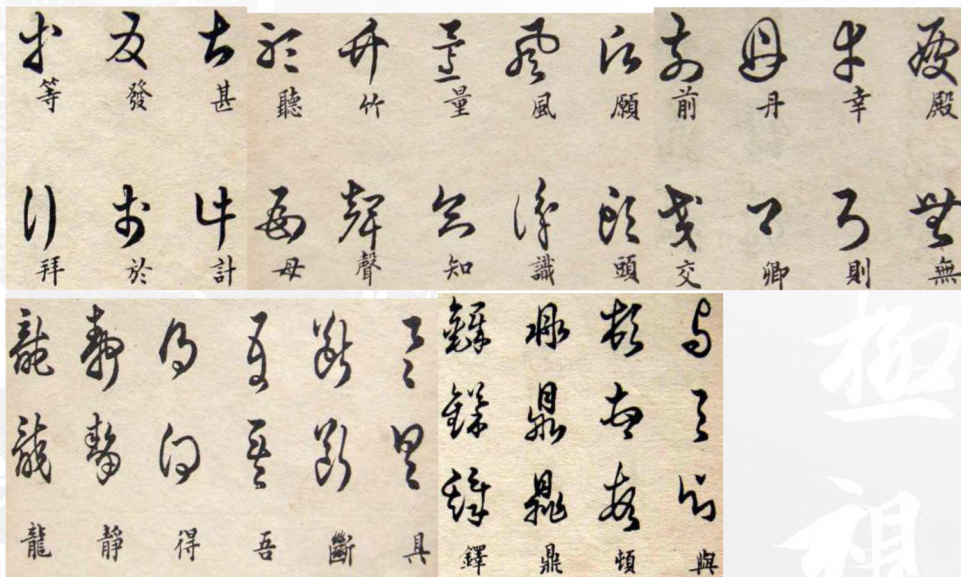 等 發 甚 聽 竹 量 風 願 前 丹 幸 殿
拜 於 計 母 聲 知 識 頭 交 卿 則 無
龍 靜 得 吾 斷 具 鐸 鼎 頓 與